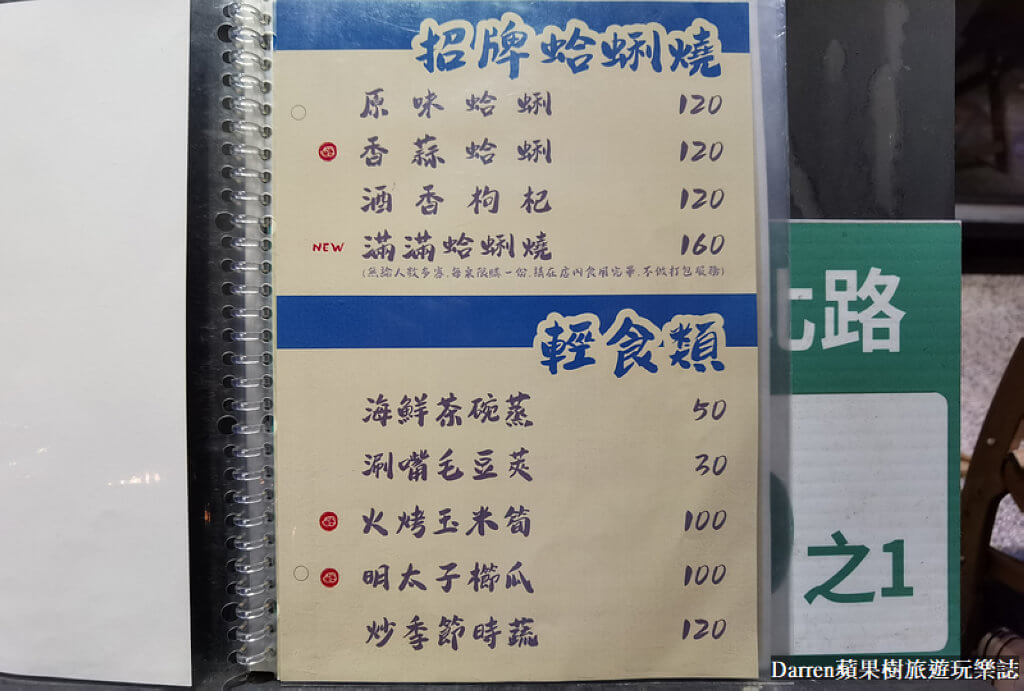 招牌蛤蜊燒
原味蛤蜊 120
香蒜蛤蜊 120
酒香枸杞 120
NEW 滿滿蛤蜊燒 160
(無論人數多寡,每桌限購一份,請在店內食用完畢,不做打包服務)
輕食類
海鮮茶碗蒸 50
涮嘴毛豆莢 30
火烤玉米筍 100
明太子櫛瓜 100
炒季節時蔬 120
路
之1
Darren蘋果樹旅遊玩樂誌